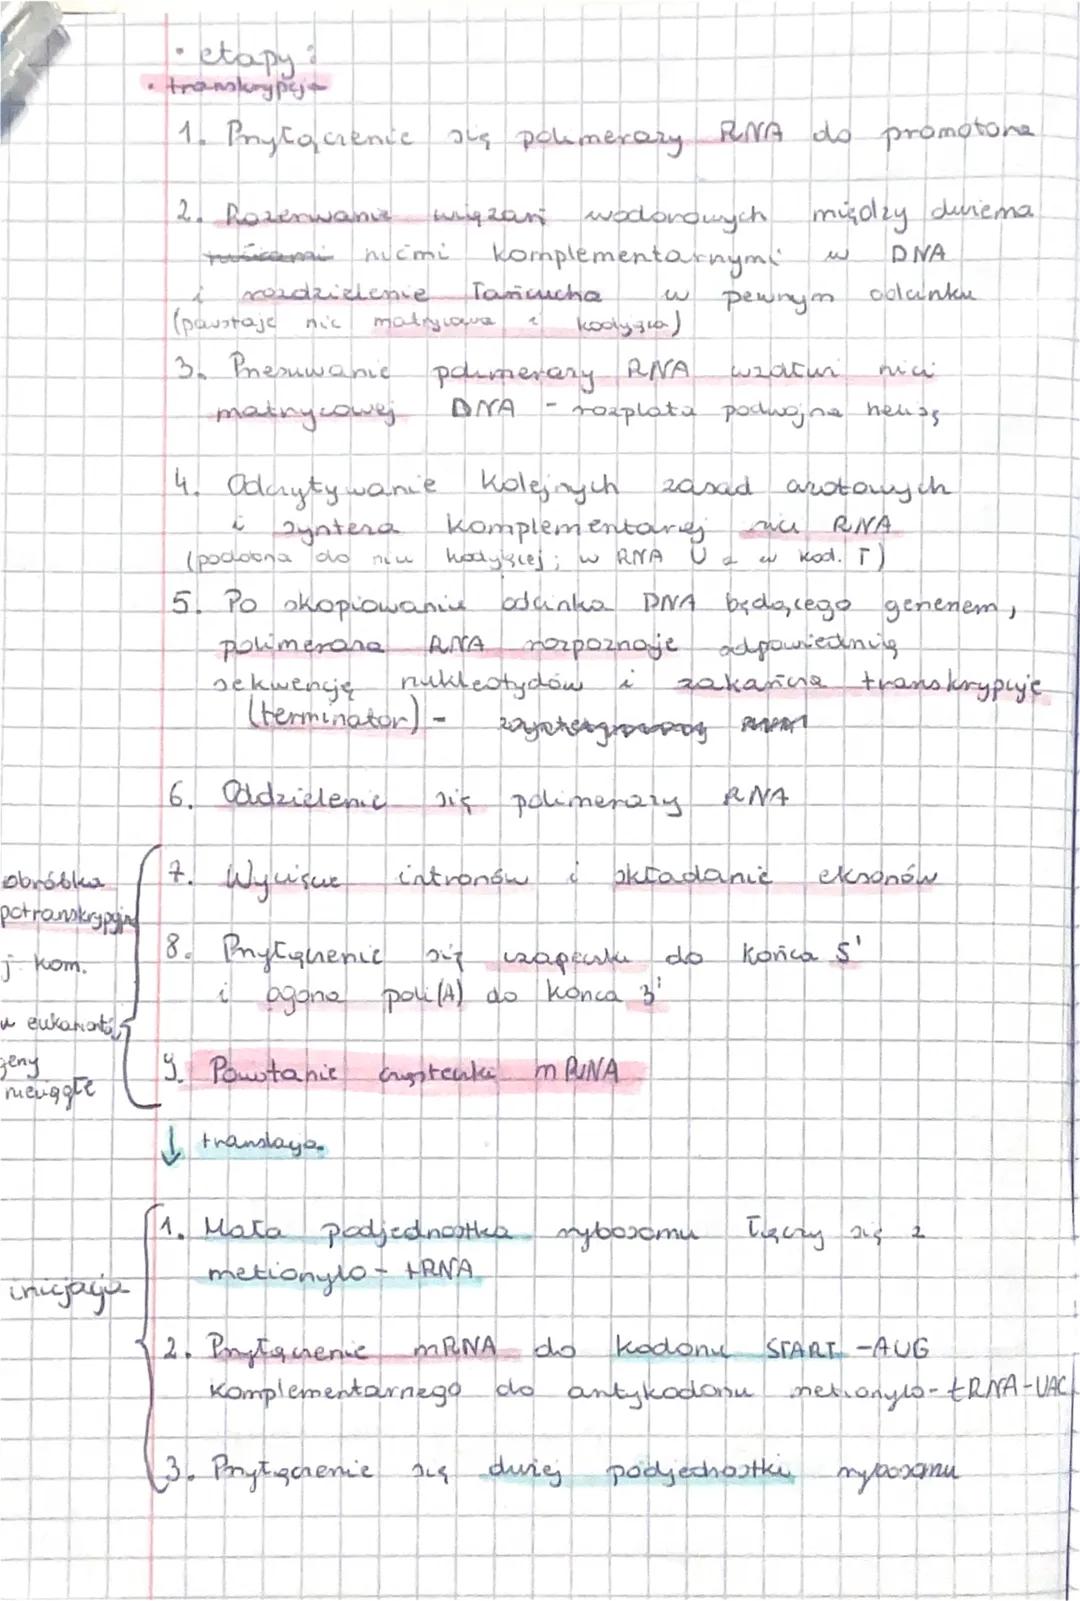 • etapy:
• transkrypcja
1. Przyłączenie się polimerazy RNA do promotora
2. Rozerwanie wiązań wodorowych między dwiema
nićmi komplementarnymi w DNA
i rozdzielenie łańcucha w pewnym odcinku
(powstaje nić matrycowa i kodująca)
3. Przesuwanie polimerazy RNA wzdłuż nici
matrycowej DNA - rozplata podwójną helisę
4. Odczytywanie kolejnych zasad azotowych
i synteza komplementarnej nici RNA
(podobna do nici kodującej; w RNA U a w kod. T)
5. Po skopiowaniu odcinka DNA będącego genenem,
polimeraza RNA rozpoznaje odpowiednią
sekwencję nukleotydów i zakańcza transkrypcję
(terminator) -
6. Oddzielenie się polimerazy RNA
obróbka
potranskrypcyjna
j. kom.
u eukariontów
geny
nieciągłe
7. Wycięcie intronów i składanie eksonów
8. Przyłączenie się czapeczki do końca 5'
i ogona poli(A) do końca 3'
9. Powstanie cząsteczki mRNA
↓ translacja
inicjacja
1. Mała podjednostka rybosomu łączy się z
metionylo-tRNA
2. Przyłączenie mRNA do kodonu START-AUG
komplementarnego do antykodonu metionylo-tRNA-UAC
3. Przyłączenie się dużej podjednostki rybosomu